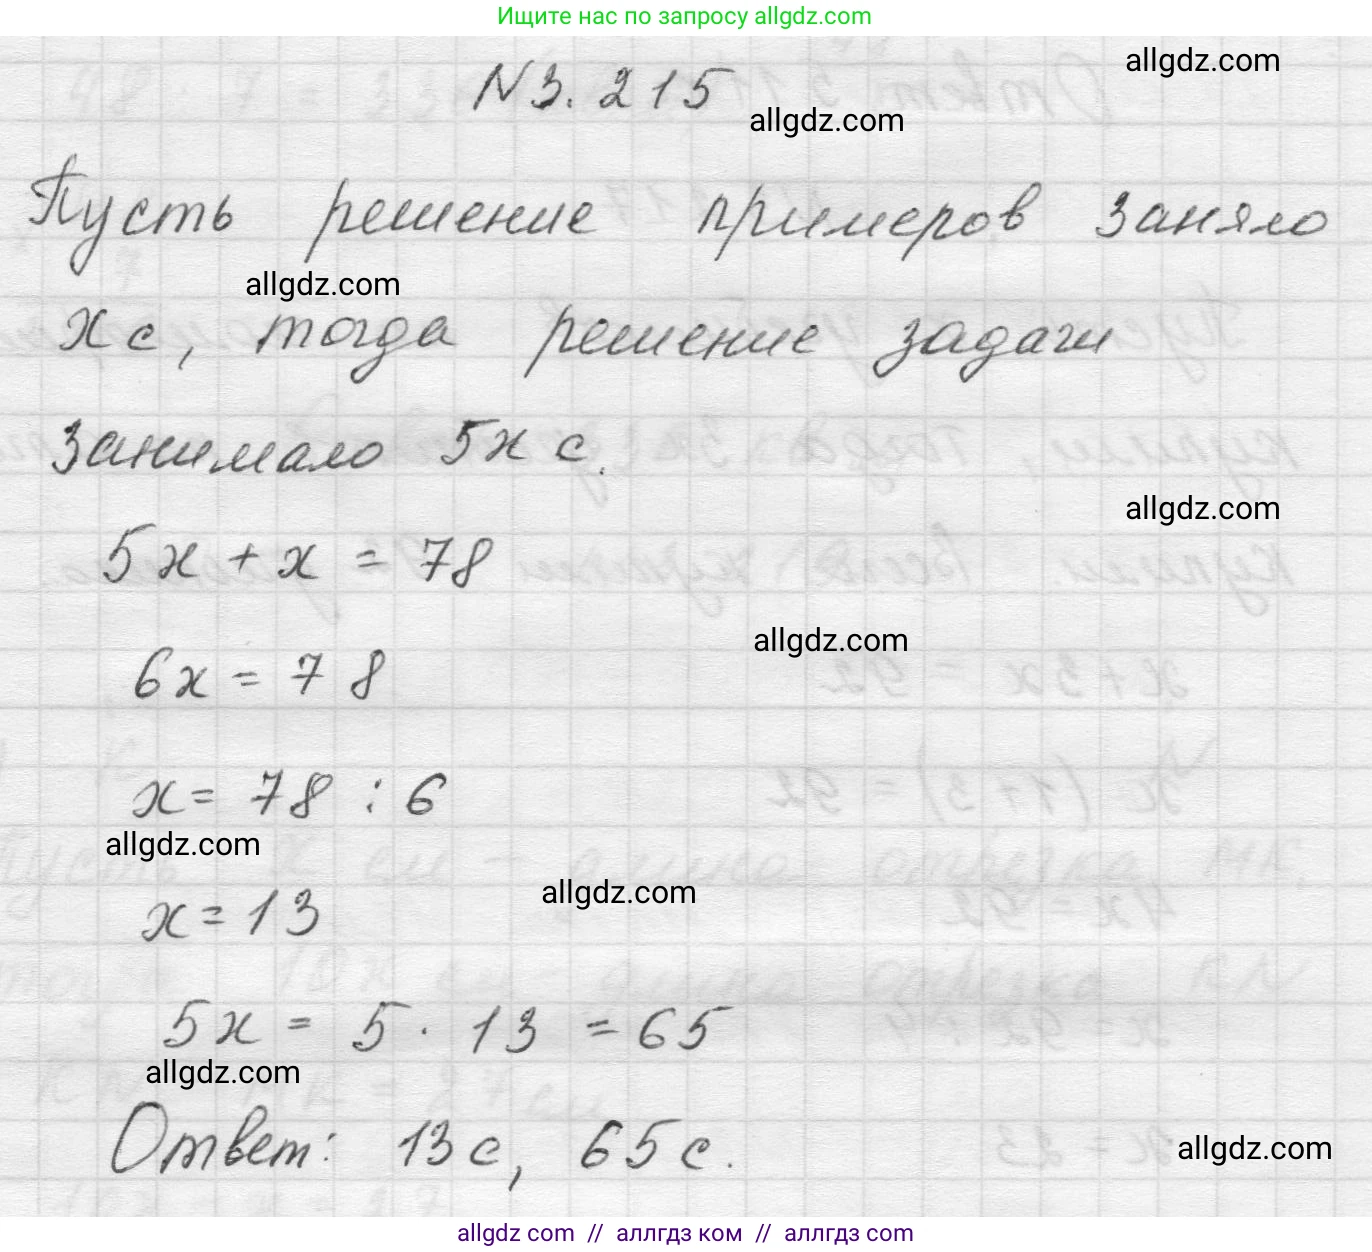 Ищите нас по запросу allgdz.com
allgdz.com
№3.215
allgdz.com
Пусть решение примеров заняло
allgdz.com
x с, тогда решение задачи
занимало 5x с.
allgdz.com
5x + x = 78
allgdz.com
6x = 78
x = 78 : 6
allgdz.com
allgdz.com
x = 13
5x = 5 · 13 = 65
allgdz.com
Ответ: 13с, 65с.
allgdz.com
allgdz com // аллгдз ком // аллгдз com